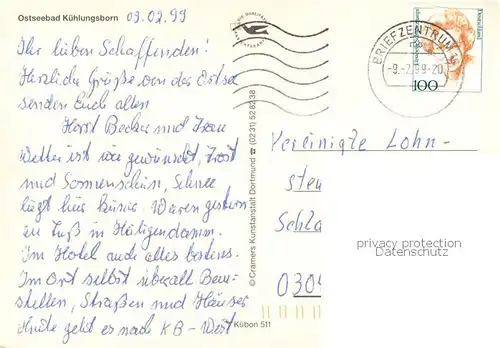 Ostseebad Kühlungsborn 09.02.99
Ihr lieben Schaffenden!
Herzliche Grüße von der Ostsee
senden Euch allen
Horst Becker und Frau
Wetter ist wie gewünscht, Frost
und Sonnenschein, Schnee
liegt hier keiner. Waren gestern
zu Fuß in Heiligendamm.
Im Hotel auch alles bestens.
Im Ort selbst überall Bau-
stellen, Straßen und Häuser
Heute geht es nach KB-West
Kübon 511
© Cramers Kunstanstalt Dortmund ☎ (0231) 52 82 38
BRIEFZENTRUM 18
-9.-2.99-20
Deutschland
100
Vereinigte Lohn-
steu
Schla
0304
privacy protection
Datenschutz